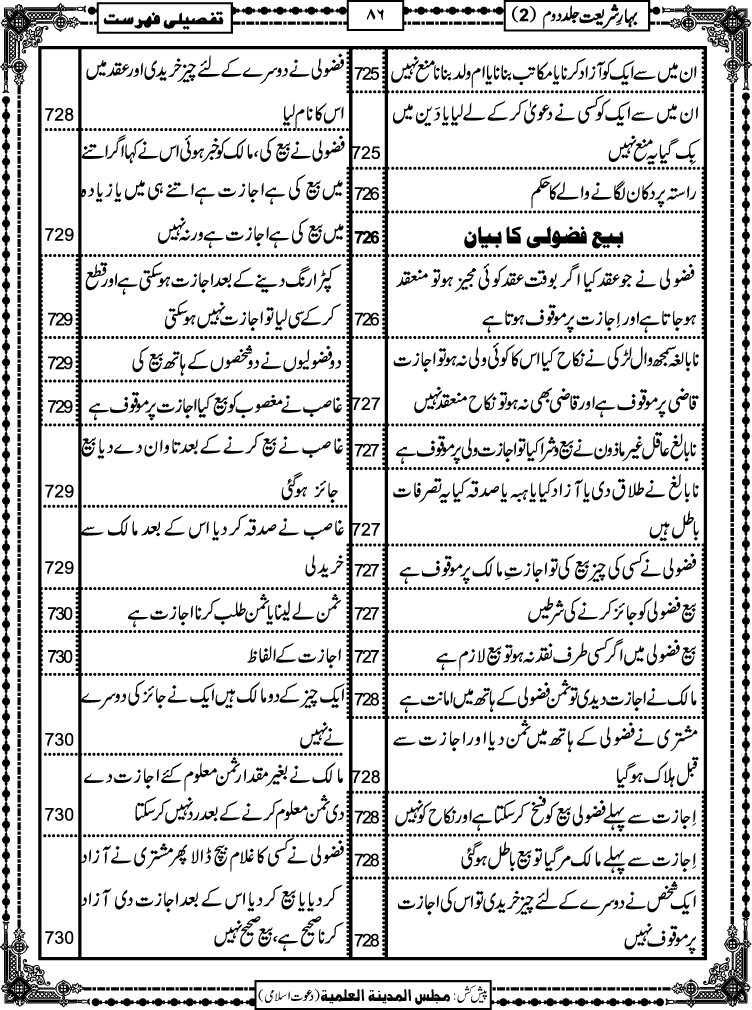 بہارِ شریعت جلد دوم (2)
۸۶
تفصیلی فہرست
ان میں سے ایک کو آزاد کرنا یا مکاتب بنانا یا ام ولد بنانا منع نہیں 725
ان میں سے ایک کو کسی نے دعویٰ کر کے لے لیا یا دَین میں
بِک گیا یہ منع نہیں 725
راستہ پر دکان لگانے والے کا حکم 726
بیع فضولی کا بیان 726
فضولی نے جو عقد کیا اگر بوقت عقد کوئی مجیز ہو تو منعقد
ہو جاتا ہے اور اِجازت پر موقوف ہوتا ہے 726
نابالغہ سمجھ وال لڑکی نے نکاح کیا اس کا کوئی ولی نہ ہو تو اجازت
قاضی پر موقوف ہے اور قاضی بھی نہ ہو تو نکاح منعقد نہیں 727
نابالغ عاقل غیر ماذون نے بیع و شرا کیا تو اجازت ولی پر موقوف ہے 727
نابالغ نے طلاق دی یا آزاد کیا یا ہبہ یا صدقہ کیا یہ تصرفات
باطل ہیں 727
فضولی نے کسی کی چیز بیع کی تو اجازتِ مالک پر موقوف ہے 727
بیع فضولی کو جائز کرنے کی شرطیں 727
بیع فضولی میں اگر کسی طرف نقد نہ ہو تو بیع لازم ہے 727
مالک نے اجازت دیدی تو ثمن فضولی کے ہاتھ میں امانت ہے 728
مشتری نے فضولی کے ہاتھ میں ثمن دیا اور اجازت سے
قبل ہلاک ہو گیا 728
اِجازت سے پہلے فضولی بیع کو فسخ کر سکتا ہے اور نکاح کو نہیں 728
اِجازت سے پہلے مالک مر گیا تو بیع باطل ہو گئی 728
ایک شخص نے دوسرے کے لئے چیز خریدی تو اس کی اجازت
پر موقوف نہیں 728
فضولی نے دوسرے کے لئے چیز خریدی اور عقد میں
اس کا نام لیا 728
فضولی نے بیع کی، مالک کو خبر ہوئی اس نے کہا اگر اتنے
میں بیع کی ہے اجازت ہے اتنے ہی میں یا زیادہ
میں بیع کی ہے اجازت ہے ورنہ نہیں 729
کپڑا رنگ دینے کے بعد اجازت ہو سکتی ہے اور قطع
کر کے سی لیا تو اجازت نہیں ہو سکتی 729
دو فضولیوں نے دو شخصوں کے ہاتھ بیع کی 729
غاصب نے مغصوب کو بیع کیا اجازت پر موقوف ہے 729
غاصب نے بیع کرنے کے بعد تاوان دے دیا بیع
جائز ہو گئی 729
غاصب نے صدقہ کر دیا اس کے بعد مالک سے
خرید لی 729
ثمن لے لینا یا ثمن طلب کرنا اجازت ہے 730
اجازت کے الفاظ 730
ایک چیز کے دو مالک ہیں ایک نے جائز کی دوسرے
نے نہیں 730
مالک نے بغیر مقدار ثمن معلوم کئے اجازت دے
دی ثمن معلوم کرنے کے بعد رد نہیں کر سکتا 730
فضولی نے کسی کا غلام بیچ ڈالا پھر مشتری نے آزاد
کر دیا یا بیع کر دیا اس کے بعد اجازت دی آزاد
کرنا صحیح ہے، بیع صحیح نہیں 730
پیش کش: مجلس المدینۃ العلمیۃ (دعوت اسلامی)